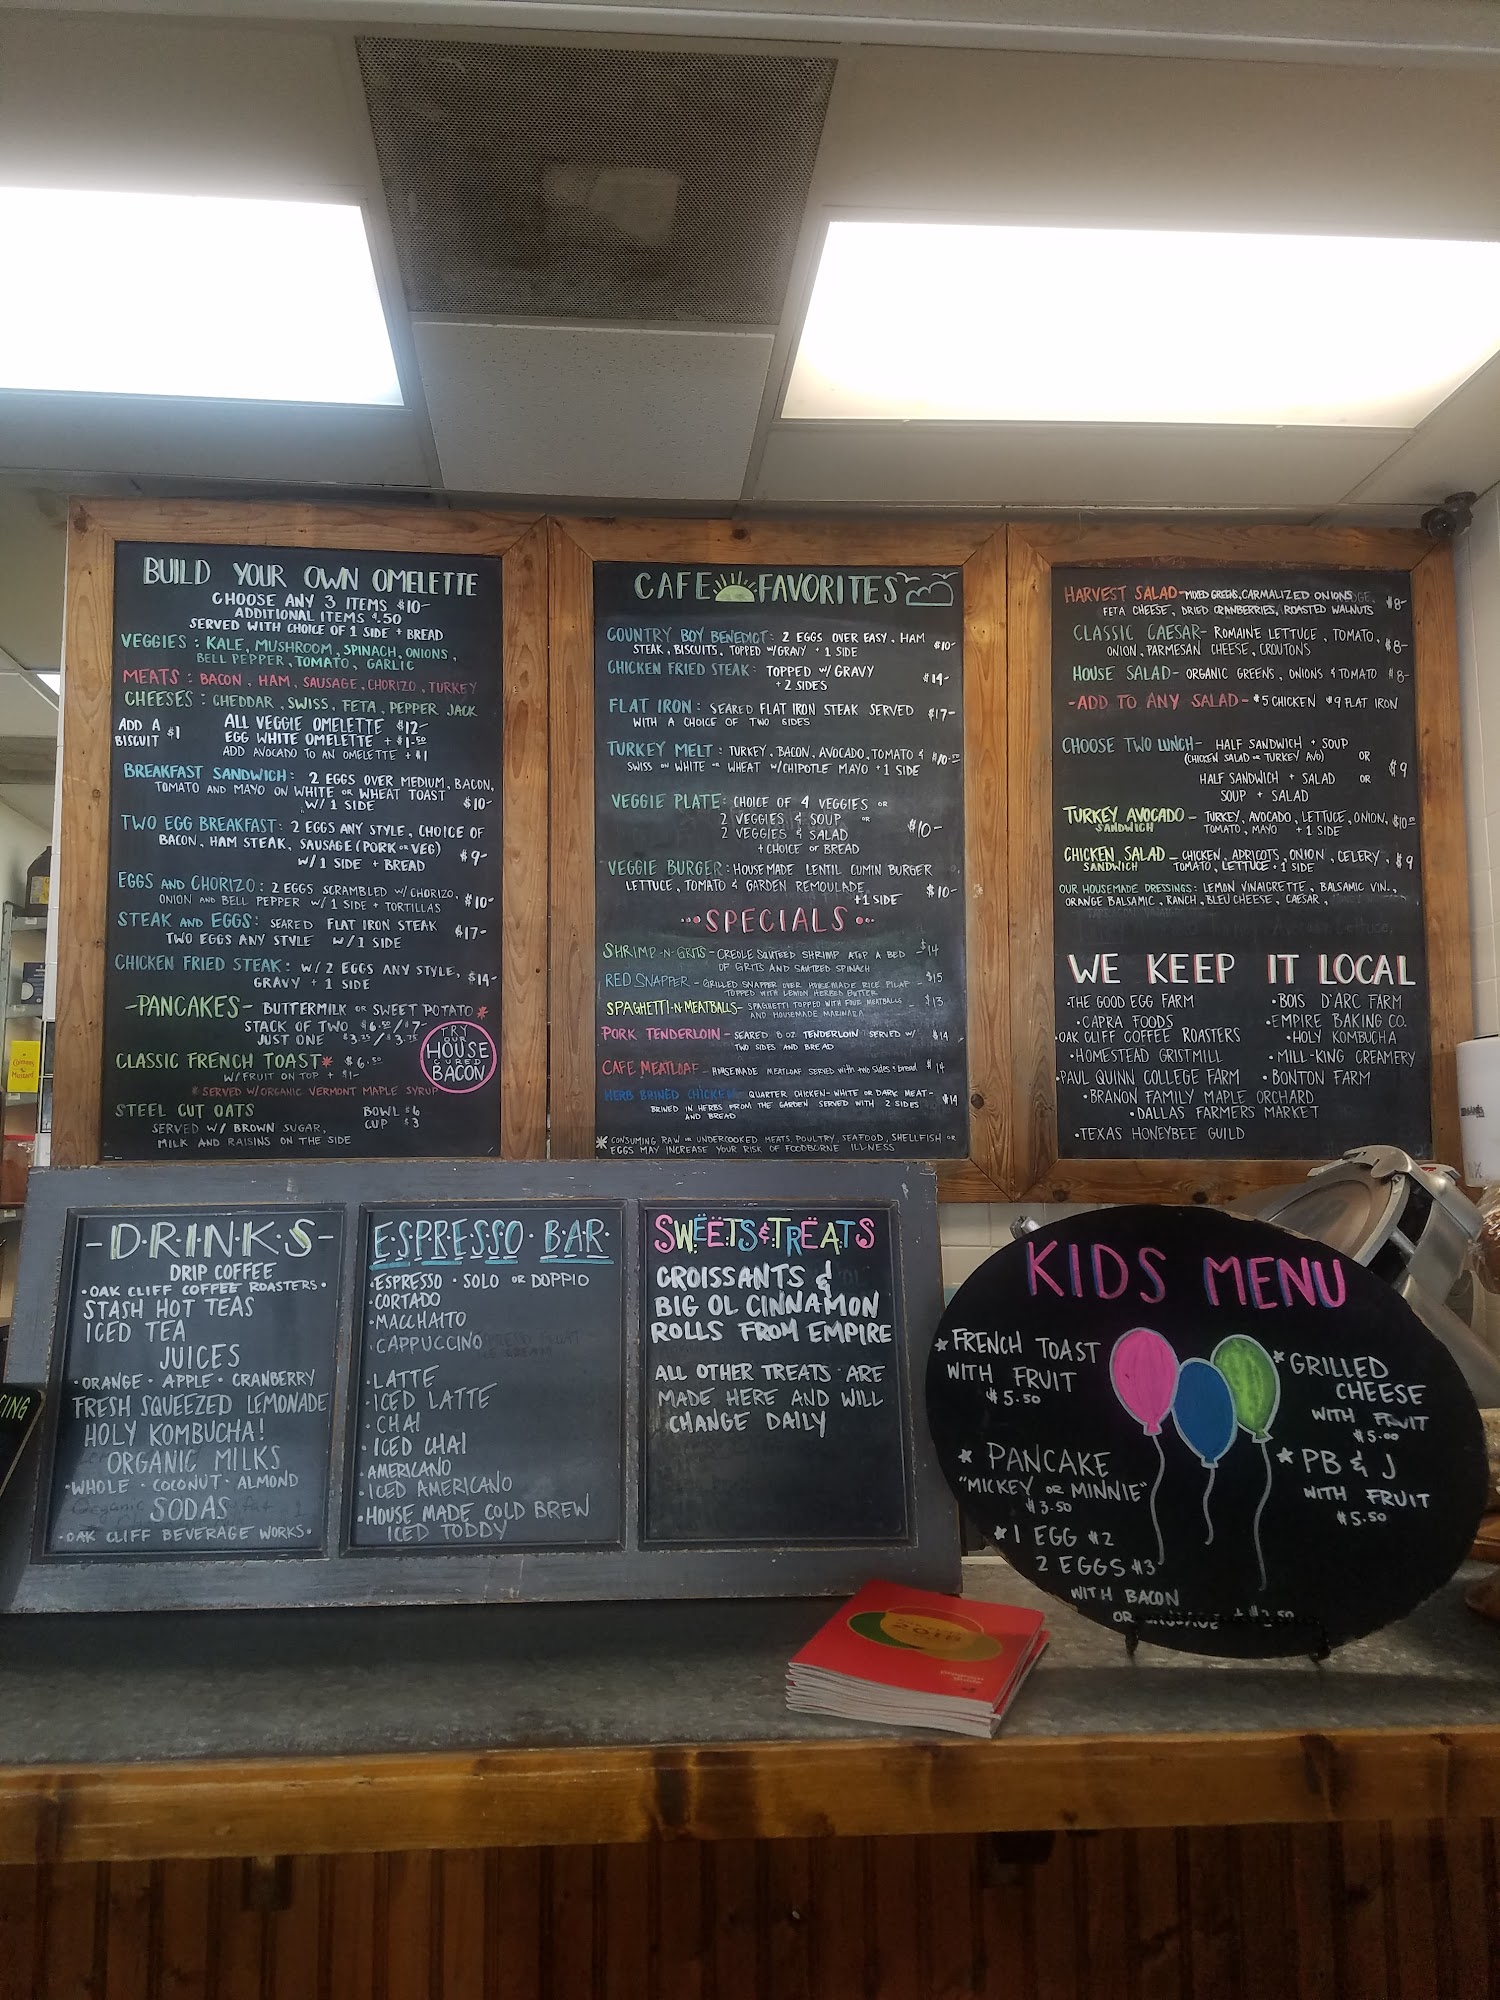 BUILD YOUR OWN OMELETTE
CHOOSE ANY 3 ITEMS $10-
ADDITIONAL ITEMS $.50
SERVED WITH CHOICE OF 1 SIDE + BREAD
VEGGIES : KALE, MUSHROOM, SPINACH, ONIONS,
BELL PEPPER, TOMATO, GARLIC
MEATS : BACON, HAM, SAUSAGE, CHORIZO, TURKEY
CHEESES : CHEDDAR, SWISS, FETA, PEPPER JACK
ADD A BISCUIT $1
ALL VEGGIE OMELETTE $12-
EGG WHITE OMELETTE + $1.50
ADD AVOCADO TO AN OMELETTE + $1
BREAKFAST SANDWICH: 2 EGGS OVER MEDIUM, BACON,
TOMATO AND MAYO ON WHITE OR WHEAT TOAST
W/ 1 SIDE $10-
TWO EGG BREAKFAST: 2 EGGS ANY STYLE, CHOICE OF
BACON, HAM STEAK, SAUSAGE (PORK OR VEG)
W/ 1 SIDE + BREAD $9-
EGGS AND CHORIZO: 2 EGGS SCRAMBLED W/ CHORIZO,
ONION AND BELL PEPPER W/ 1 SIDE + TORTILLAS $10-
STEAK AND EGGS: SEARED FLAT IRON STEAK
TWO EGGS ANY STYLE W/ 1 SIDE $17-
CHICKEN FRIED STEAK: W/ 2 EGGS ANY STYLE,
GRAVY + 1 SIDE $14-
-PANCAKES- BUTTERMILK OR SWEET POTATO*
STACK OF TWO $6.50/$7-
JUST ONE $3.25/$3.75
TRY
OUR
HOUSE
CURED
BACON
CLASSIC FRENCH TOAST* $6.50
W/ FRUIT ON TOP + $1-
*SERVED W/ORGANIC VERMONT MAPLE SYRUP
STEEL CUT OATS BOWL $6
SERVED W/ BROWN SUGAR, CUP $3
MILK AND RAISINS ON THE SIDE
CAFE FAVORITES
COUNTRY BOY BENEDICT: 2 EGGS OVER EASY, HAM
STEAK, BISCUITS, TOPPED W/GRAVY + 1 SIDE $10-
CHICKEN FRIED STEAK: TOPPED W/ GRAVY
+ 2 SIDES $14-
FLAT IRON: SEARED FLAT IRON STEAK SERVED
WITH A CHOICE OF TWO SIDES $17-
TURKEY MELT: TURKEY, BACON, AVOCADO, TOMATO &
SWISS ON WHITE OR WHEAT W/CHIPOTLE MAYO + 1 SIDE $10.50
VEGGIE PLATE: CHOICE OF 4 VEGGIES OR
2 VEGGIES & SOUP OR
2 VEGGIES & SALAD $10-
+ CHOICE OF BREAD
VEGGIE BURGER: HOUSEMADE LENTIL CUMIN BURGER
LETTUCE, TOMATO & GARDEN REMOULADE
+1 SIDE $10-
SPECIALS
SHRIMP-N-GRITS - CREOLE SAUTEED SHRIMP ATOP A BED $14
OF GRITS AND SAUTEED SPINACH
RED SNAPPER - GRILLED SNAPPER OVER HOUSEMADE RICE PILAF $15
TOPPED WITH LEMON HERBED BUTTER
SPAGHETTI-N-MEATBALLS - SPAGHETTI TOPPED WITH FOUR MEATBALLS $13
AND HOUSEMADE MARINARA
PORK TENDERLOIN - SEARED 8 OZ TENDERLOIN SERVED W/ $14
TWO SIDES AND BREAD
CAFE MEATLOAF - HOUSEMADE MEATLOAF SERVED with two sides & bread $14
HERB BRINED CHICKEN - QUARTER CHICKEN - WHITE OR DARK MEAT -
BRINED IN HERBS FROM THE GARDEN SERVED WITH 2 SIDES $14
AND BREAD
* CONSUMING RAW OR UNDERCOOKED MEATS, POULTRY, SEAFOOD, SHELLFISH OR
EGGS MAY INCREASE YOUR RISK OF FOODBORNE ILLNESS
HARVEST SALAD - MIXED GREENS, CARMALIZED ONIONS
FETA CHEESE, DRIED CRANBERRIES, ROASTED WALNUTS $8-
CLASSIC CAESAR - ROMAINE LETTUCE, TOMATO,
ONION, PARMESAN CHEESE, CROUTONS $8-
HOUSE SALAD - ORGANIC GREENS, ONIONS & TOMATO $8-
-ADD TO ANY SALAD- $5 CHICKEN $9 FLAT IRON
CHOOSE TWO LUNCH - HALF SANDWICH + SOUP
(CHICKEN SALAD OR TURKEY AVO) OR
HALF SANDWICH + SALAD OR $9
SOUP + SALAD
TURKEY AVOCADO - TURKEY, AVOCADO, LETTUCE, ONION, $10.50
SANDWICH TOMATO, MAYO + 1 SIDE
CHICKEN SALAD - CHICKEN, APRICOTS, ONION, CELERY, $9
SANDWICH TOMATO, LETTUCE + 1 SIDE
OUR HOUSEMADE DRESSINGS: LEMON VINAIGRETTE, BALSAMIC VIN.,
ORANGE BALSAMIC, RANCH, BLEU CHEESE, CAESAR,
WE KEEP IT LOCAL
•THE GOOD EGG FARM
•CAPRA FOODS
•OAK CLIFF COFFEE ROASTERS
•HOMESTEAD GRISTMILL
•PAUL QUINN COLLEGE FARM
•BRANON FAMILY MAPLE ORCHARD
•DALLAS FARMERS MARKET
•TEXAS HONEYBEE GUILD
•BOIS D'ARC FARM
•EMPIRE BAKING CO.
•HOLY KOMBUCHA
•MILL-KING CREAMERY
•BONTON FARM
-D•R•I•N•K•S-
DRIP COFFEE
•OAK CLIFF COFFEE ROASTERS•
STASH HOT TEAS
ICED TEA
JUICES
•ORANGE•APPLE•CRANBERRY
FRESH SQUEEZED LEMONADE
HOLY KOMBUCHA!
ORGANIC MILKS
•WHOLE•COCONUT•ALMOND
SODAS
•OAK CLIFF BEVERAGE WORKS•
E•S•P•R•E•S•S•O• B•A•R•
•ESPRESSO•SOLO OR DOPPIO
•CORTADO
•MACCHAITO
•CAPPUCCINO
•LATTE
•ICED LATTE
•CHAI
•ICED CHAI
•AMERICANO
•ICED AMERICANO
•HOUSE MADE COLD BREW
ICED TODDY
SWEETS & TREATS
CROISSANTS &
BIG OL CINNAMON
ROLLS FROM EMPIRE
ALL OTHER TREATS ARE
MADE HERE AND WILL
CHANGE DAILY
KIDS MENU
*FRENCH TOAST
WITH FRUIT
$5.50
*PANCAKE
"MICKEY OR MINNIE"
$3.50
*1 EGG $2
2 EGGS $3
WITH BACON
OR SAUSAGE
*GRILLED
CHEESE
WITH FRUIT
$5.00
*PB & J
WITH FRUIT
$5.50
2018